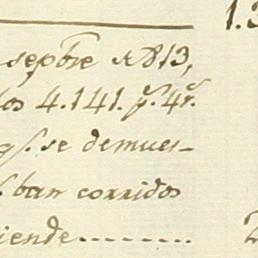 1.3
septbre 1813,
los 4.141. p.s 4 r.s
q.s se demues-
s ban corridos
iende..........2